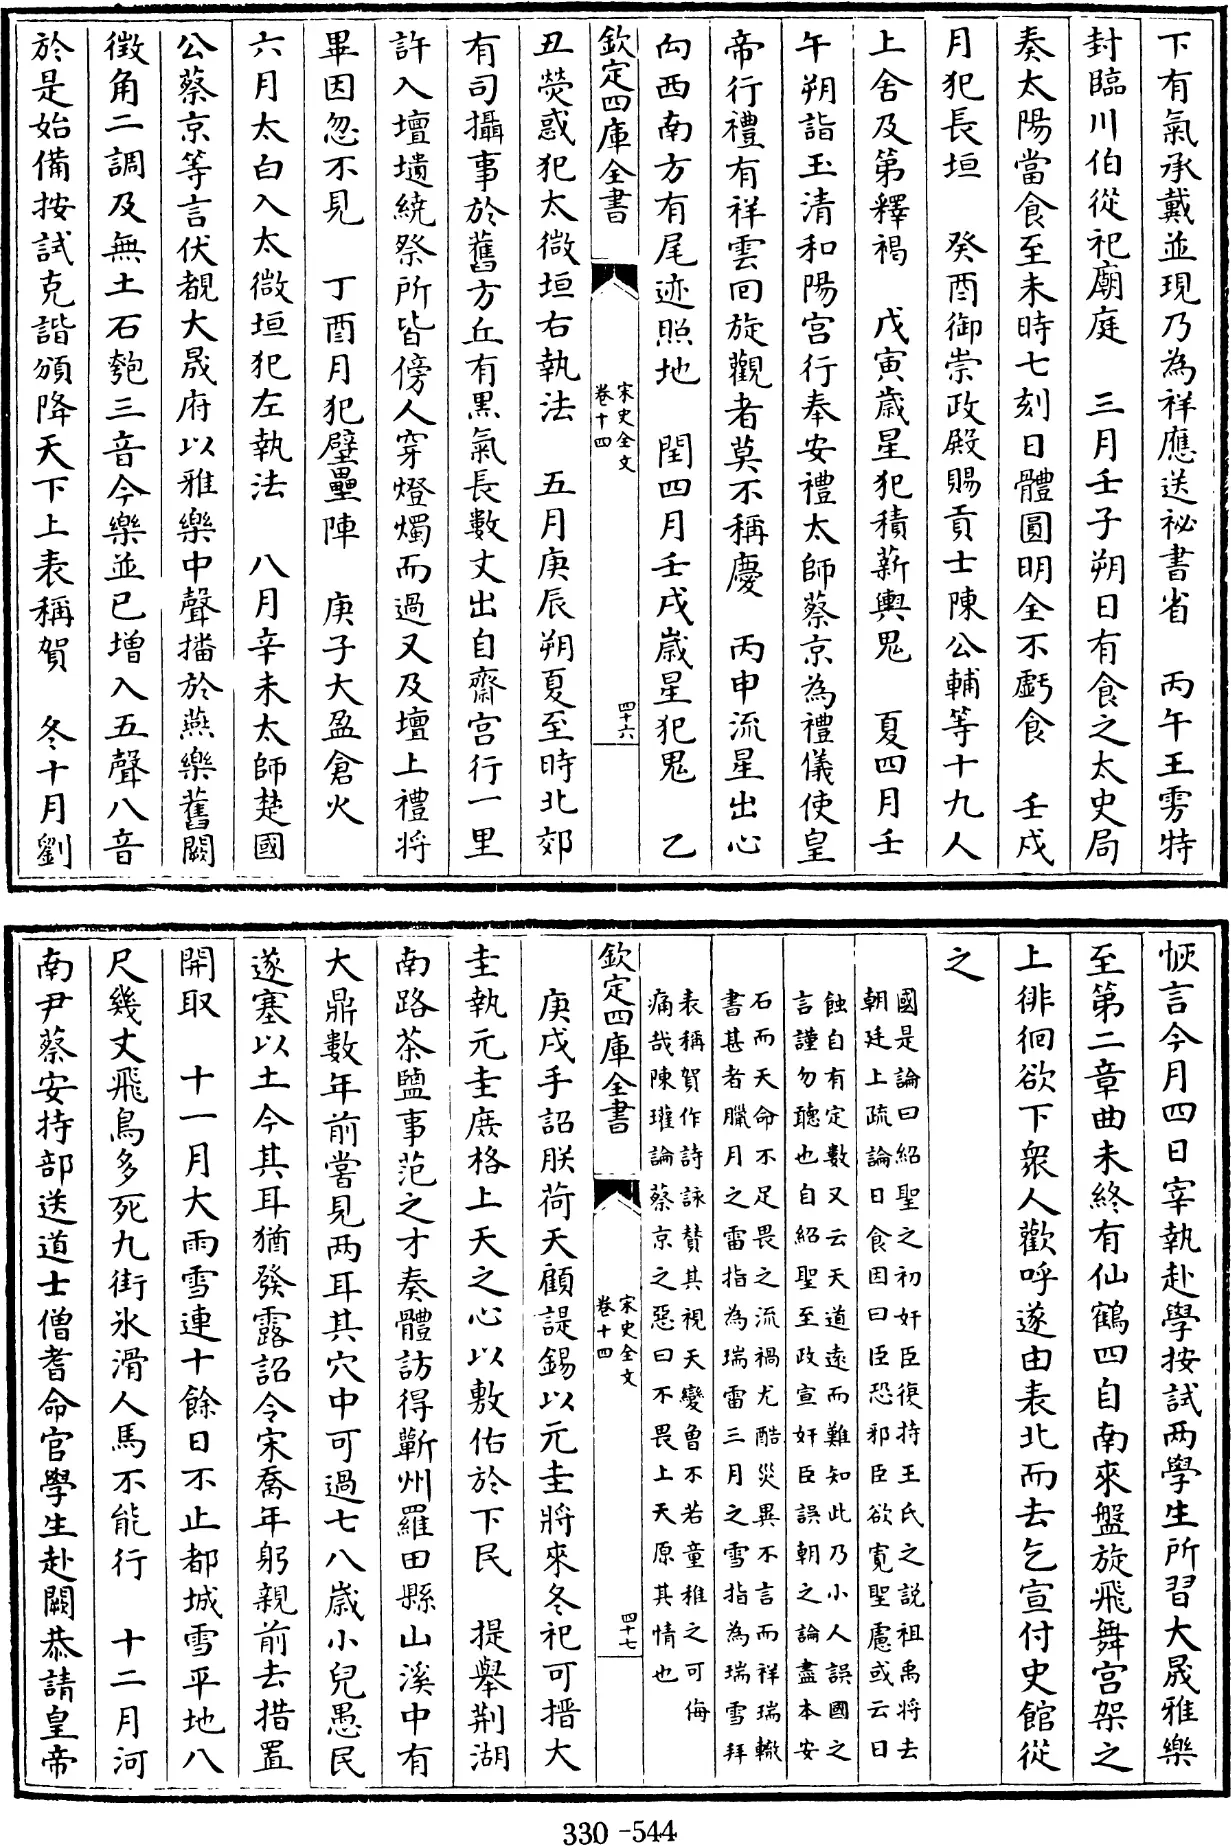 下有氣承戴並現乃為祥應送祕書省　丙午王雱特
封臨川伯從祀廟庭　三月壬子朔日有食之太史局
奏太陽當食至未時七刻日體圓明全不虧食　壬戌
月犯長垣　癸酉御崇政殿賜貢士陳公輔等十九人
上舍及第釋褐　戊寅歲星犯積薪輿鬼　夏四月壬
午朔詣玉清和陽宮行奉安禮太師蔡京為禮儀使皇
帝行禮有祥雲回旋觀者莫不稱慶　丙申流星出心
向西南方有尾迹照地　閏四月壬戌歲星犯鬼　乙
欽定四庫全書
宋史全文
卷十四
四十六
丑熒惑犯太微垣右執法　五月庚辰朔夏至時北郊
有司攝事於舊方丘有黑氣長數丈出自齋宮行一里
許入壇壝繞祭所皆傍人穿燈燭而過又及壇上禮將
畢因忽不見　丁酉月犯壁壘陣　庚子大盈倉火
六月太白入太微垣犯左執法　八月辛未太師楚國
公蔡京等言伏覩大晟府以雅樂中聲播於燕樂舊闕
徵角二調及無土石匏三音今樂並已增入五聲八音
於是始備按試克諧頒降天下上表稱賀　冬十月劉
恢言今月四日宰執赴學按試兩學生所習大晟雅樂
至第二章曲未終有仙鶴四自南來盤旋飛舞宮架之
上徘徊欲下衆人歡呼遂由表北而去乞宣付史館從
之
國是論曰紹聖之初奸臣復持王氏之說祖禹將去
朝廷上疏論日食因曰臣恐邪臣欲寬聖慮或云日
蝕自有定數又云天道遠而難知此乃小人誤國之
言謹勿聽也自紹聖至政宣奸臣誤朝之論盡本安
石而天命不足畏之流禍尤酷災異不言而祥瑞輙
書甚者臘月之雷指為瑞雷三月之雪指為瑞雪拜
表稱賀作詩詠賛其視天變曾不若童稚之可侮
痛哉陳瓘論蔡京之惡曰不畏上天原其情也
欽定四庫全書
宋史全文
卷十四
四十七
庚戌手詔朕荷天顧諟錫以元圭將來冬祀可搢大
圭執元圭庶格上天之心以敷佑於下民　提舉荆湖
南路茶鹽事范之才奏體訪得蘄州羅田縣山溪中有
大鼎數年前嘗見兩耳其穴中可過七八歲小兒愚民
遂塞以土今其耳猶發露詔令宋喬年躬親前去措置
開取　十一月大雨雪連十餘日不止都城雪平地八
尺幾丈飛鳥多死九街氷滑人馬不能行　十二月河
南尹蔡安持部送道士僧耆命官學生赴闕恭請皇帝
330-544